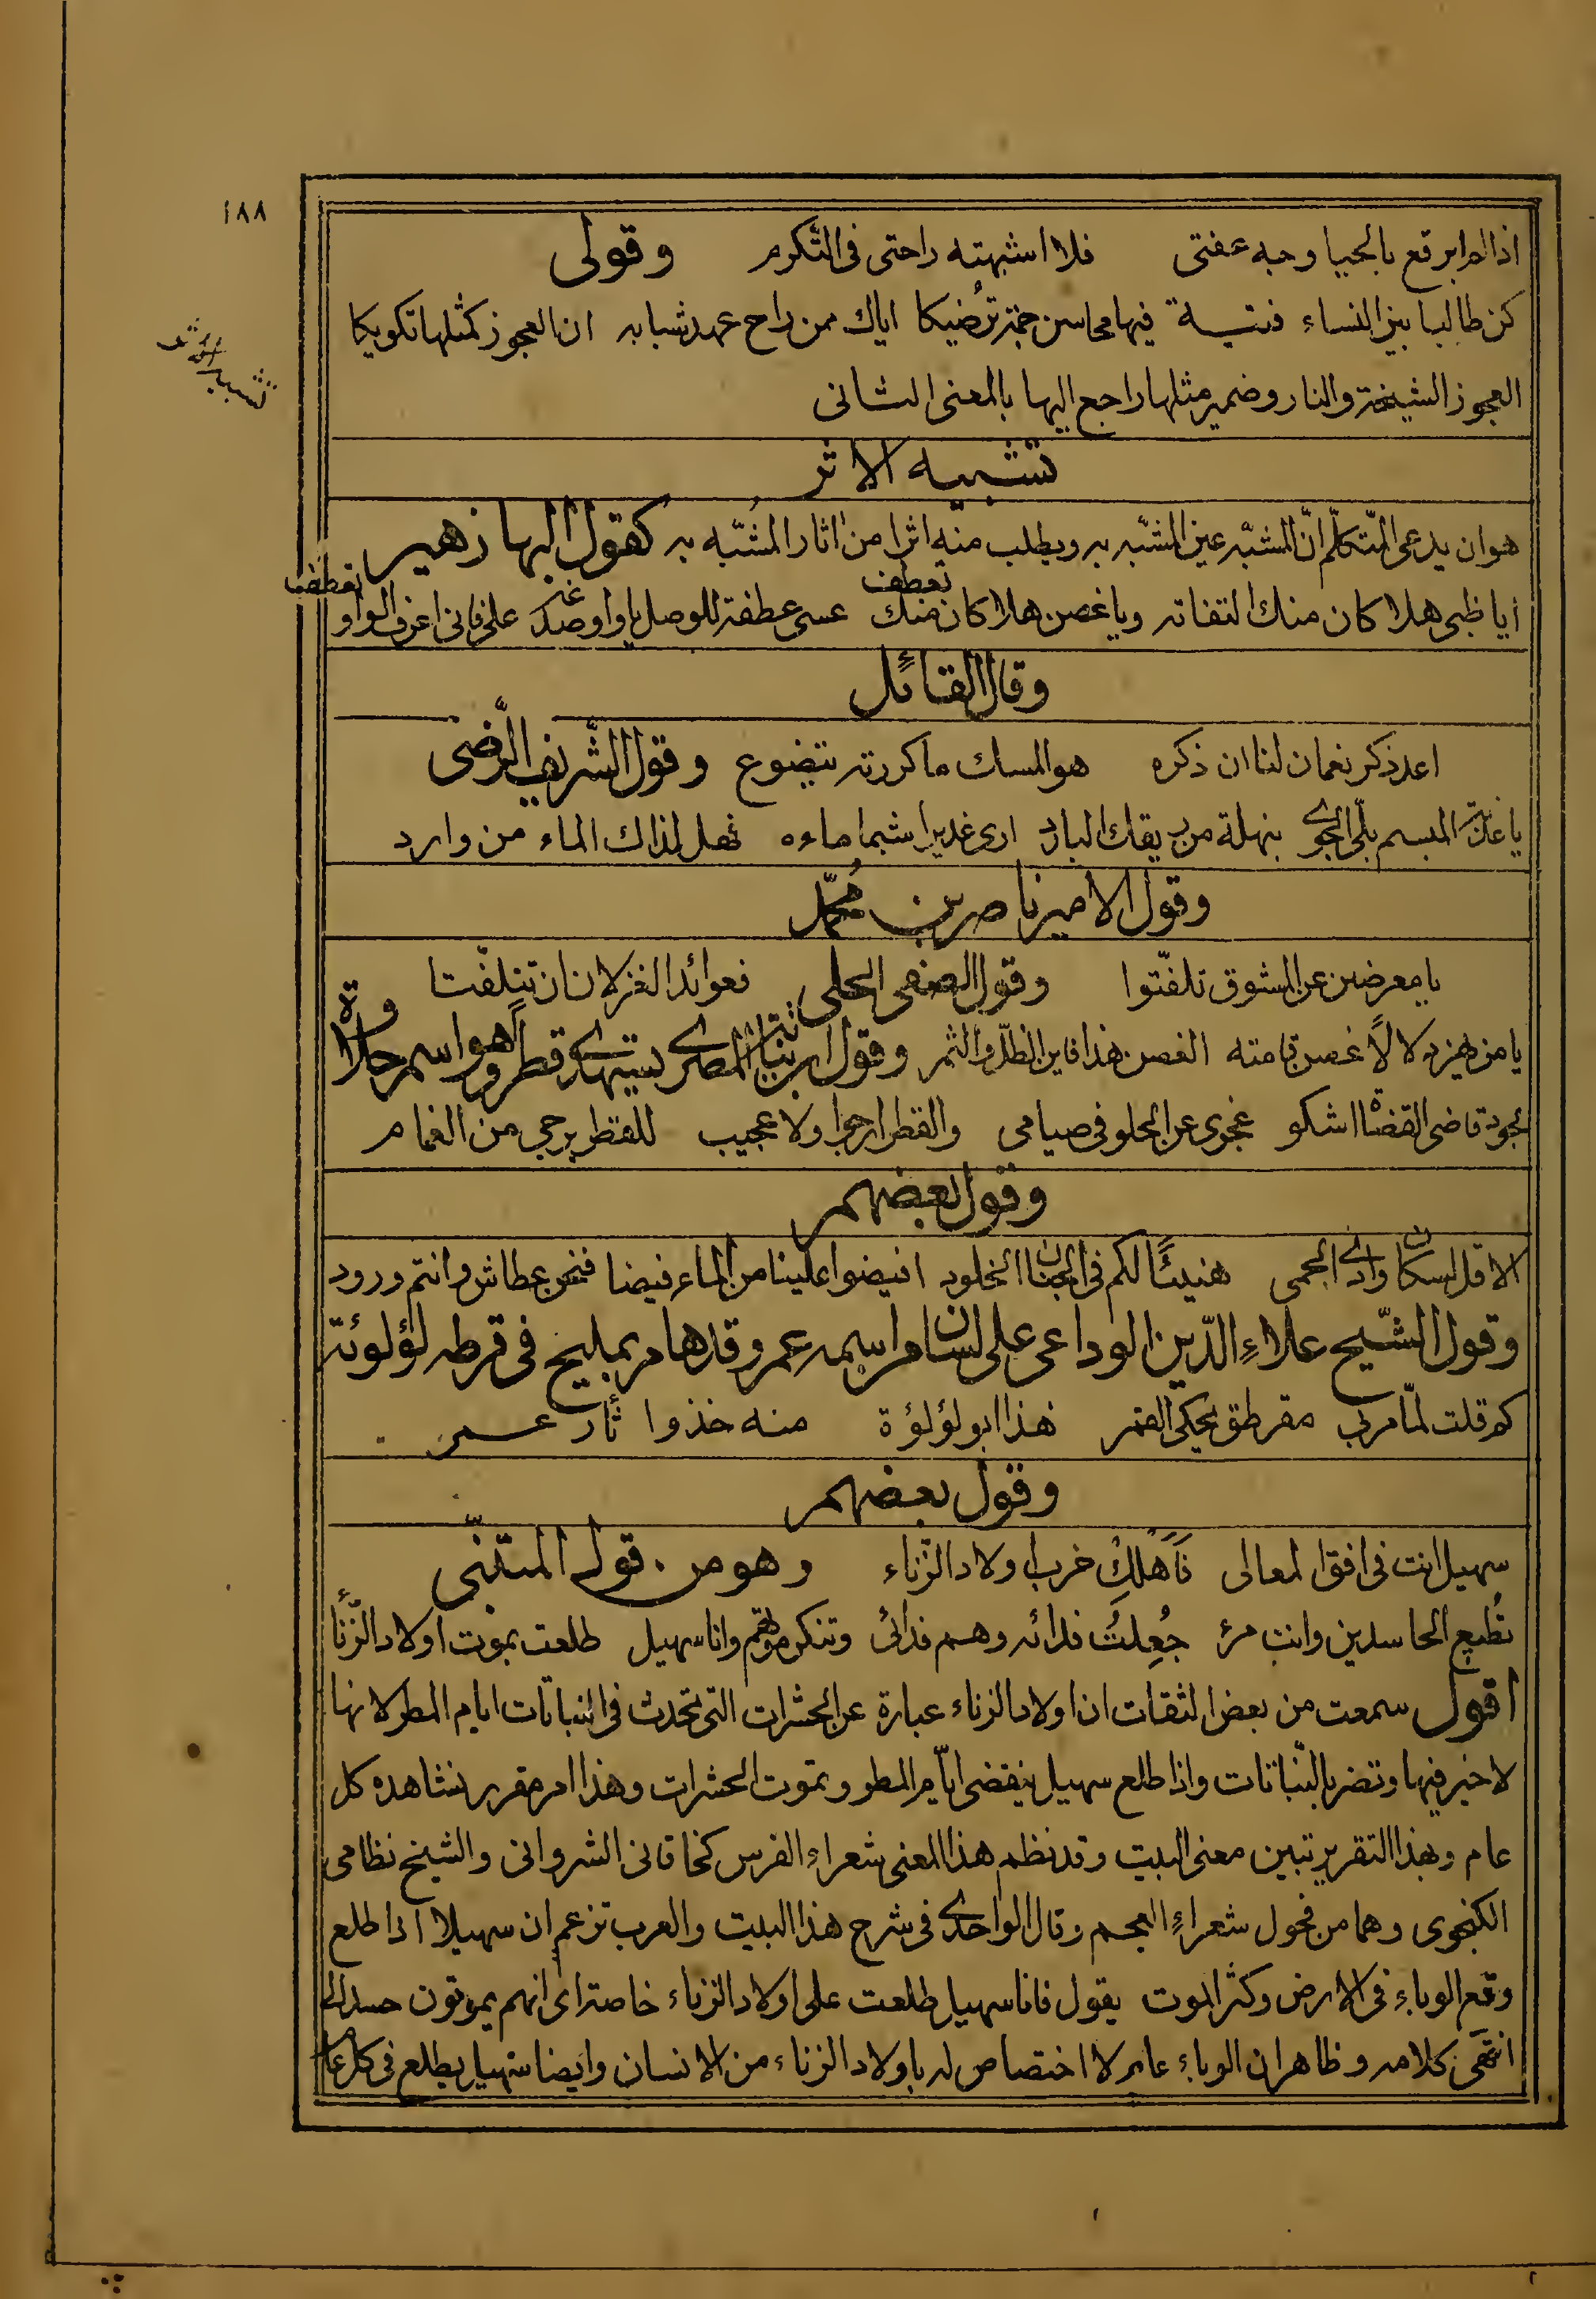 ١٨٨
اذا لم ابرقع بالحيا وجه عفتى فلا اشبهته راحتى فى التكرم وقولى
كن طالبا بين النساء فتية فيها محاسن جمة ترضيكا اياك ممن راح عهد شبابه ان العجوز كمثلها تكويكا
العجوز الشيخة والنار وضمير مثلها راجع اليها بالمعنى الثانى
تشبيه الاثر
تشبيه الاثر
هو ان يدعى المتكلّم انّ المشبّه عين المشبّه به ويطلب منه اثرا من اثار المشبّه به كقول البها زهير
ايا ظبى هلا كان منك التفاته ويا غصن هلا كان منك تعطف عسى عطفة للوصل يا واو صدغه على فانى اعرف الواو تعطف
وقال القائل
اعد ذكر نعمان لنا ان ذكره هو المسك ما كررته يتضوع وقول الشّريف الرّضى
يا عذبة المبسم بلّى الجوى بنهلة من ريقك البارد ارى غديرا شبما ماءه فهل لذاك الماء من وارد
وقول الامير ناصر بن محمّد
يا معرضين عن المشوق تلفّتوا فعوائد الغزلان ان تتلفّتا وقول الصفى الحلى
يا من يهز دلالًا غصن قامته الغصن هذا فاين الظلّ والثمر وقول ابن نباتة المصرى يستهدى قطرا وهو اسم حلاوة
بجود قاضى القضاة اشكو عجزى عن الحلو فى صيامى والقطر ارجوا ولا عجيب للقطر يرجى من الغمام
وقول بعضهم
الا قل لسكان وادى الحمى هنيئًا لكم فى الجنان الخلود افيضوا علينا من الماء فيضا فنحن عطاش وانتم ورود
وقول الشّيخ علاء الدّين الوداعى على لسان امر اسمه عمر وقد هام بمليح فى قرطه لؤلوئة
كم قلت لمّا مر بى مقرطق يحكى القمر هذا ابو لؤلؤة منه خذوا ثأر عمر
وقول بعضهم
سهيل انت فى افق المعالى فاهلك خرب اولاد الزّناء وهو من قول المتنبّى
تُطيع الحاسدين وانت مرء جُعِلتُ فدائه وهم فدائى وتنكر موتهم وانا سهيل طلعت بموت اولاد الزّناء
اقول سمعت من بعض الثقات ان اولاد الزناء عبارة عن الحشرات التى تحدث فى النباتات ايام المطر لانها
لا خير فيها وتضر بالنّباتات واذا طلع سهيل ينقضى ايّام المطر وتموت الحشرات وهذا امر مقرر نشاهده كل
عام وبهذا التقرير تبين معنى البيت وقد نظم هذا المعنى شعراء الفرس كخاقانى الشروانى والشيخ نظامى
الكنجوى وهما من فحول شعراء العجم وقال الواحدى فى شرح هذا البيت والعرب تزعم ان سهيلا اذا طلع
وقع الوباء فى الارض وكثر الموت يقول فانا سهيل طلعت على اولاد الزناء خاصة اى انهم يموتون حسدا لى
انتهى كلامه وظاهر ان الوباء عام لا اختصاص له باولاد الزناء من الانسان وايضا سهيل يطلع فى كل عام